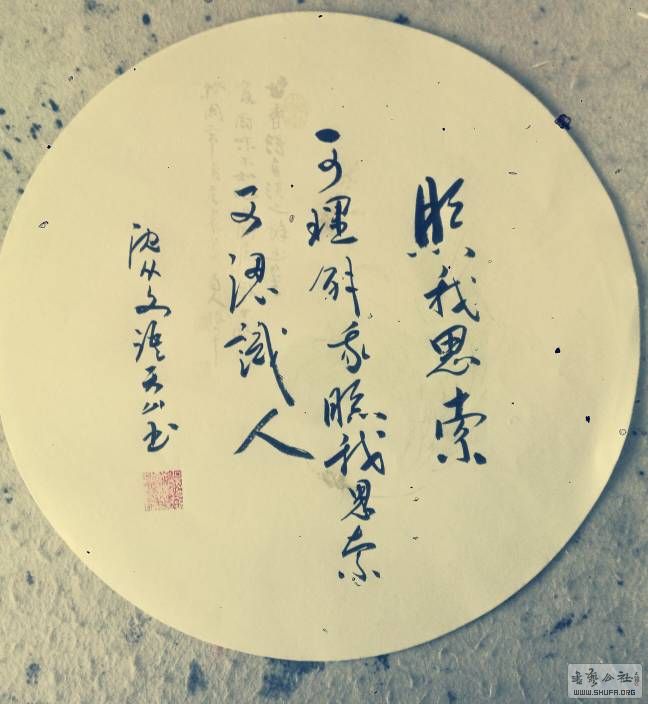 照我思索
可理解我照我思索
可認識人
沈从文語天山书
書藝公社
WWW.SHUFA.ORG